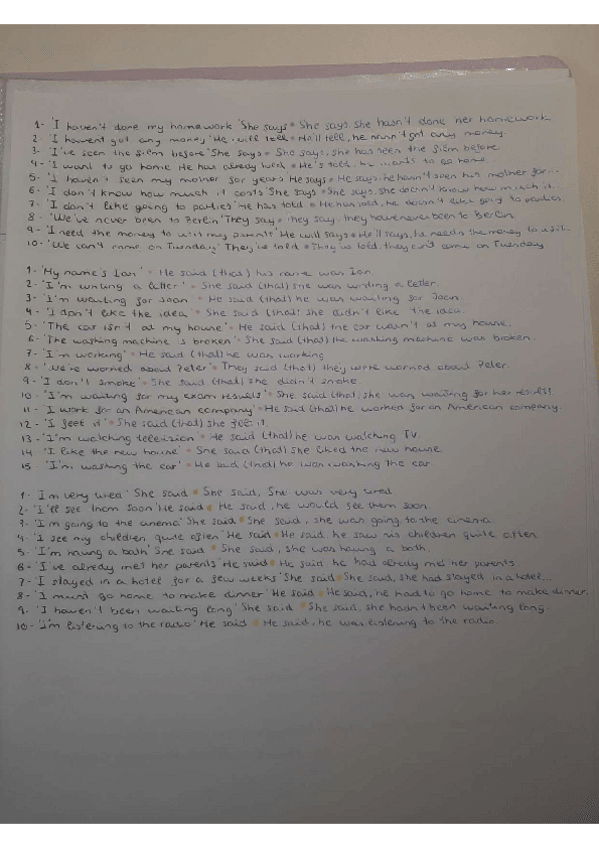 1- 'I haven't done my homework 'She says = She says, she hasn't done her homework
2- 'I havent got any money 'He will tell = He'll tell, he hasn't got any money.
3- 'I've seen the film before 'She says = She says, she has seen the film before
4- 'I want to go home He has already = He's told, he to go home
5- 'I haven't seen my mother for years He says = He says, he hasn't seen his mother for...
6- 'I don't know how much it costs 'She says = She says, she doesn't know how much it
7- 'I don't like going to parties' He has told = He has told, he doesn't like going to parties
8- 'We've never been to Berlin 'They say = They say, they have never been to Berlin
9- 'I need the money to my parents' He will says = He'll says, he needs the money to
10- 'We can't come on Tuesday' They've told = They've told, they can't come on Tuesday
1- 'My name's Ian' = He said (that) his name was Ian.
2- 'I'm writing a letter' = She said (that) she was writing a letter.
3- 'I'm waiting for Joan = He said (that) he was waiting for Joan.
4- 'I don't like the idea' = She said (that) she didn't like the idea.
5- 'The car isn't at my house' = He said (that) the car wasn't at my house.
6- 'The washing machine is broken' = She said (that) the washing machine was broken.
7- 'I'm working' = He said (that) he was working
8- 'We're worried about Peter' = They said (that) they were worried about Peter.
9- 'I don't smoke' = She said (that) she didn't smoke
10- 'I'm waiting for my exam results' = She said (that) she was waiting for her results
11- 'I work for an American company' = He said (that) he worked for an American company.
12- 'I feel it' = She said (that) she it.
13- 'I'm watching television' = He said (that) he was watching TV.
14 'I like the new house' = She said (that) she liked the new house
15 'I'm washing the car' = He said (that) he was washing the car
1- I'm very tired' She said = She said, She was very tired
2- 'I'll see them soon 'He said = He said, he would see them soon
3- 'I'm going to the cinema 'She said = She said, she was going to the cinema
4- 'I see my children quite often 'He said = He said, he saw his children quite often
5- 'I'm having a bath' She said = She said, she was having a bath.
6- 'I've already met her parents 'He said = He said he had already met her parents
7- I stayed in a hotel for a few weeks 'She said = She said, she had stayed in a hotel...
8- 'I must go home to make dinner 'He said = He said, he had to go home to make dinner.
9- 'I haven't been waiting long' She said = She said, she hadn't been waiting long.
10- 'I'm listening to the radio' He said = He said, he was listening to the radio.